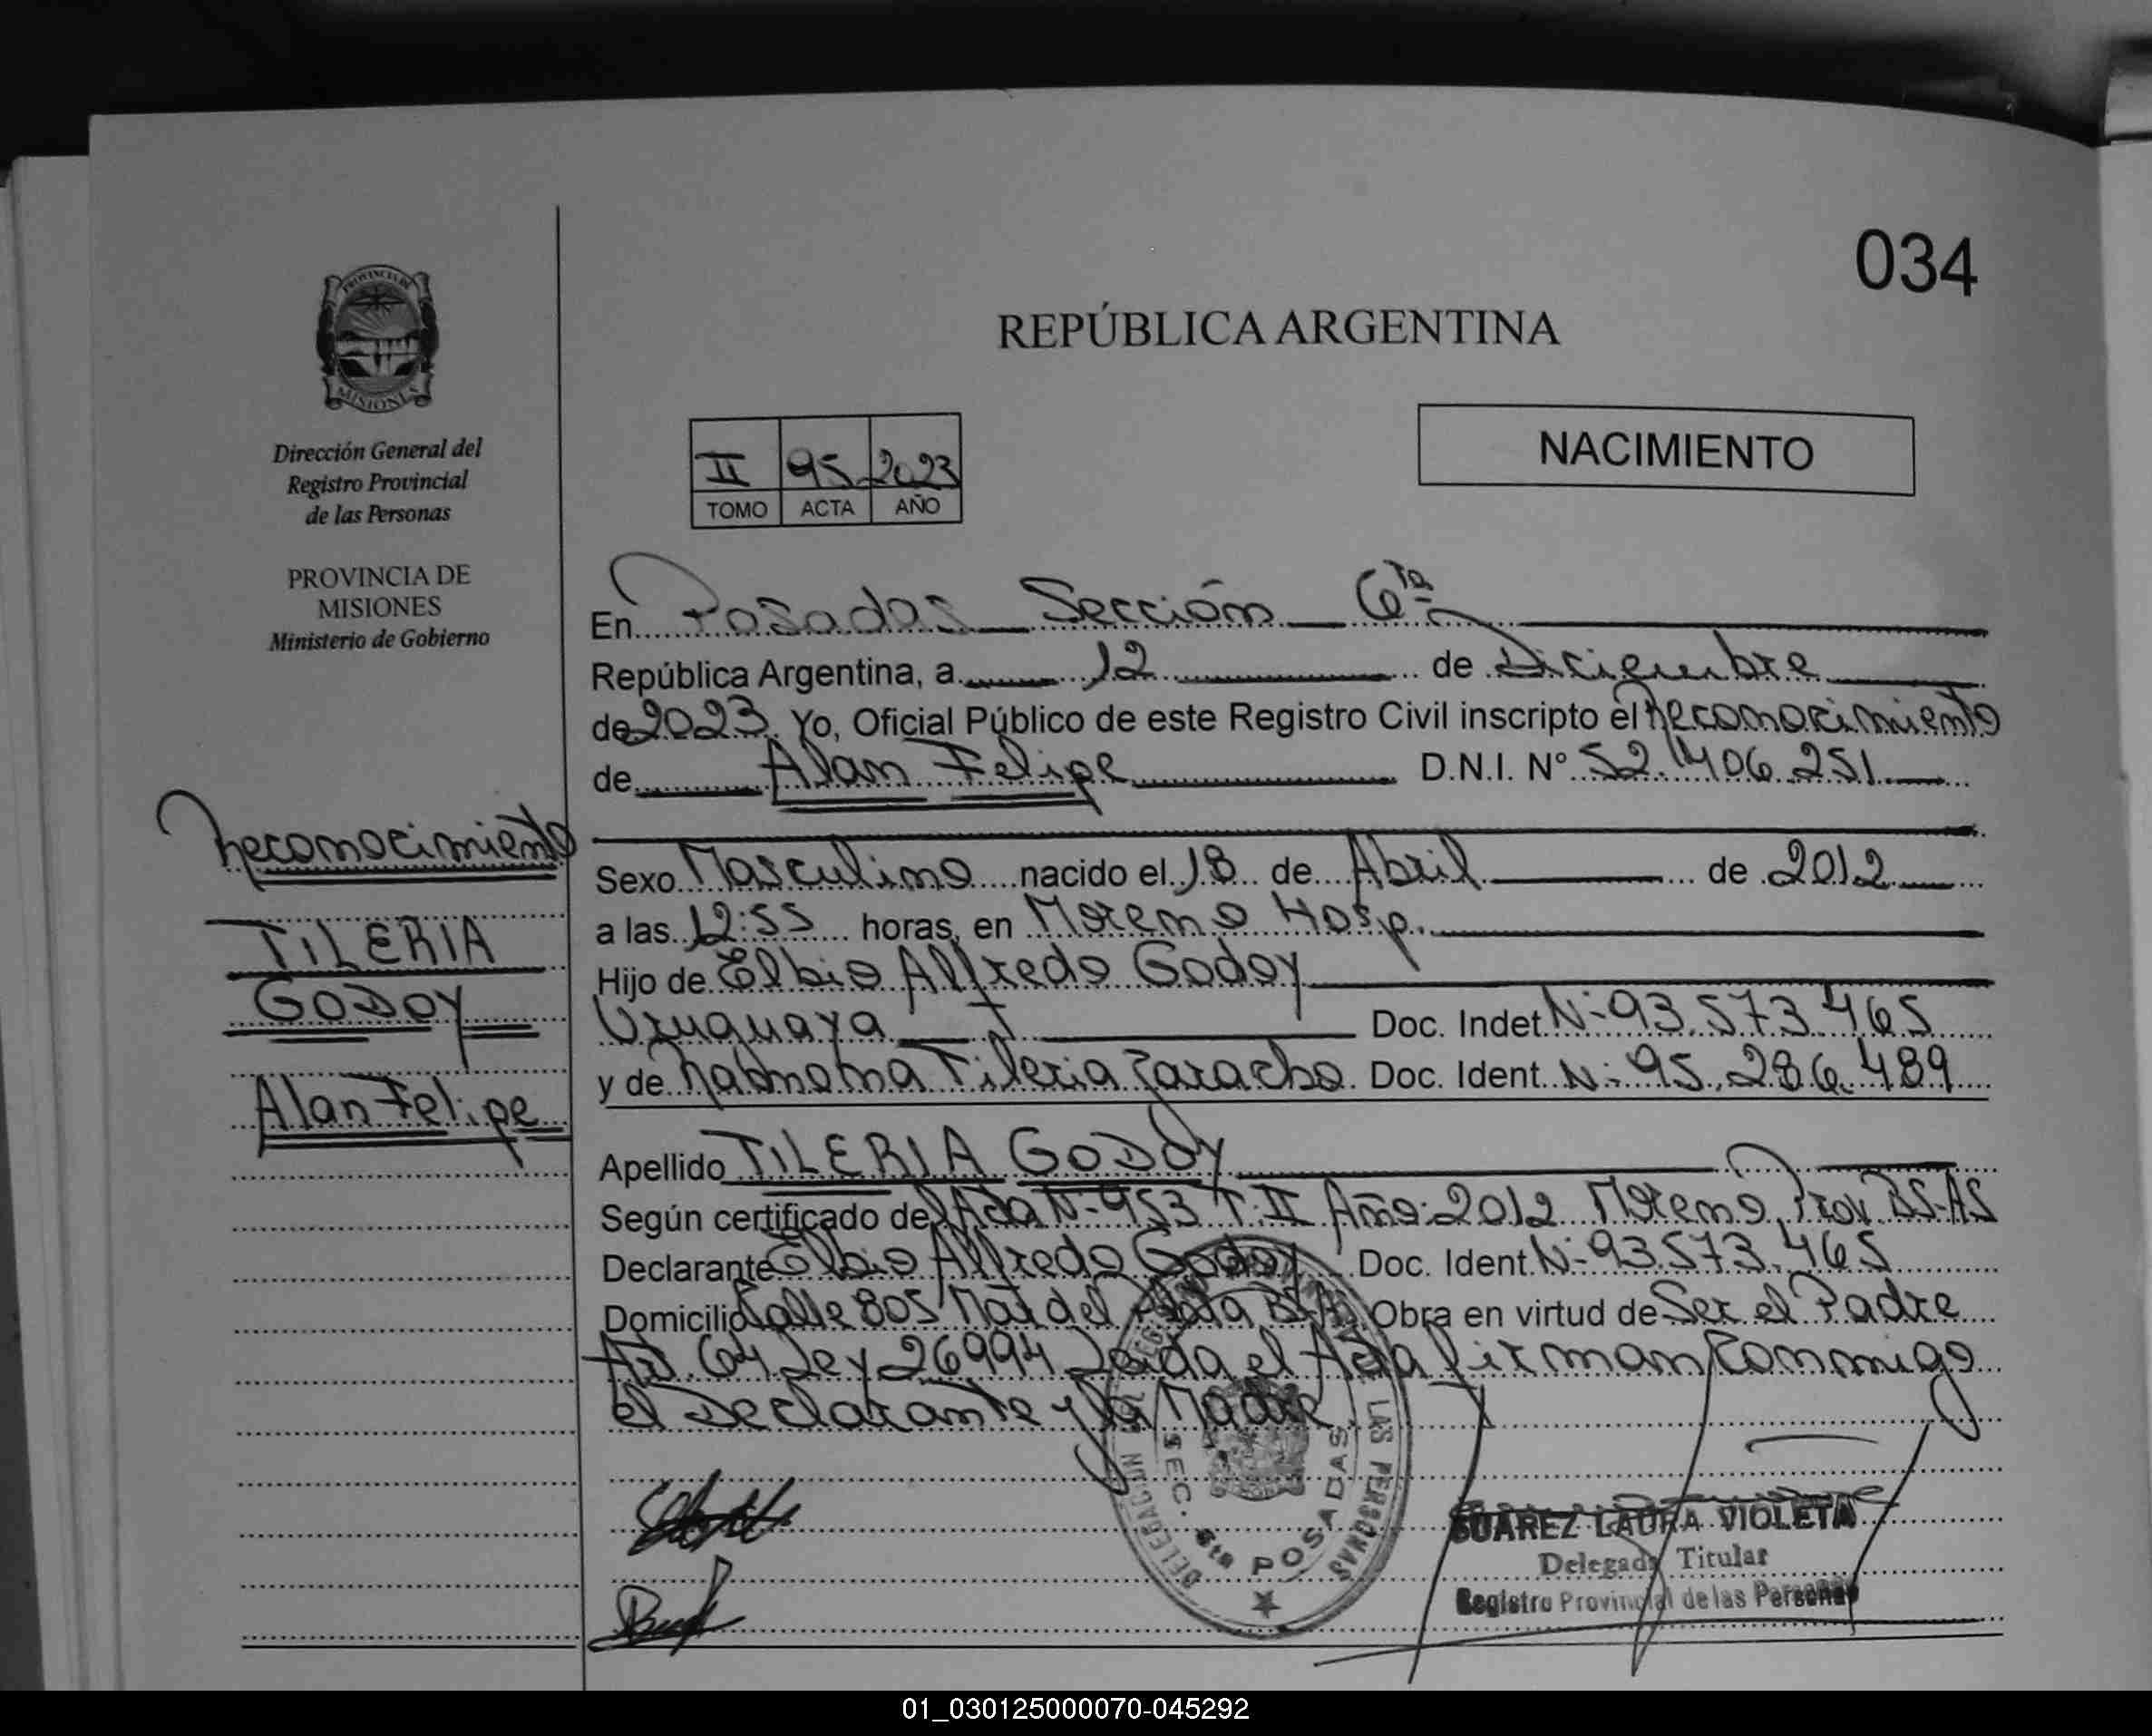 034
PROVINCIA DE
MISIONES
Dirección General del
Registro Provincial
de las Personas
PROVINCIA DE
MISIONES
Ministerio de Gobierno
Reconocimiento
TILERIA
GODOY
Alan Felipe
REPÚBLICA ARGENTINA
NACIMIENTO
II 95 2023
TOMO ACTA AÑO
En Posadas Sección 6ta
República Argentina, a 12 de Diciembre
de 2023 Yo, Oficial Público de este Registro Civil inscripto el Reconocimiento
de Alan Felipe D.N.I. N° 52.406.251
Sexo Masculino nacido el 18 de Abril de 2012
a las 12:55 horas, en Moreno Hosp.
Hijo de Elbio Alfredo Godoy
Uruguaya Doc. Indet N-93.573.465
y de Tileria Zaracho Doc. Ident. N-95.286.489
Apellido TILERIA GODOY
Según certificado del Acta N-953 T:II Año:2012 Moreno, Prov. BS-AS
Declarante Elbio Alfredo Godoy Doc. Ident. N-93.573.465
Domicilio Calle 805 Mar del Plata BS.A. Obra en virtud de Ser el Padre
Art. 64 Ley 26994 Leida el Acta firman conmigo
el Declarante y la Madre
DELEGAC. LAS PERSONAS
SEC. 6ta POSADAS
SUAREZ LAURA VIOLETA
Delegada Titular
Registro Provincial de las Personas
01_030125000070-045292